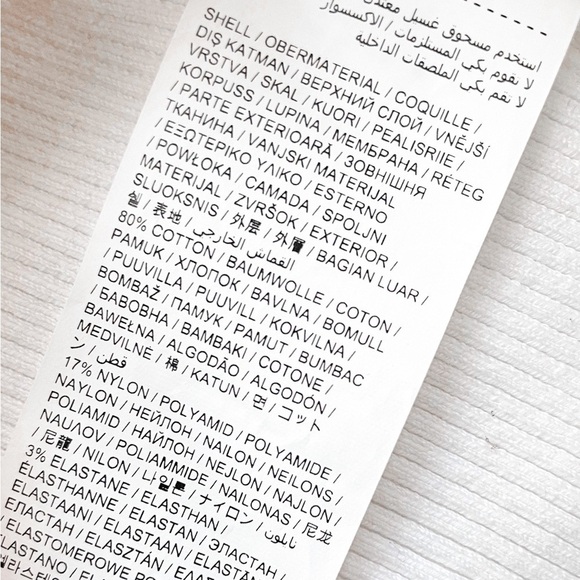 استخدم مسحوق غسيل معتدل
لا تقوم بكي المستلزمات / الاكسسوار
لا تقم بكي الملصقات الداخلية
SHELL / OBERMATERIAL / COQUILLE /
DIŞ KATMAN / ВЕРХНИЙ СЛОЙ / VNĚJŠÍ
VRSTVA / SKAL / KUORI / PEALISRIIE /
KORPUSS / LUPINA / МЕМБРАНА / RÉTEG
/ PARTE EXTERIOARĂ / ЗОВНІШНЯ
ТКАНИНА / VANJSKI MATERIJAL
/ ΕΞΩΤΕΡΙΚΟ ΥΛΙΚΟ / ESTERNO
/ POWŁOKA / CAMADA / SPOLJNI
MATERIJAL / ZVRŠOK / EXTERIOR /
SLUOKSNIS / 外层 / 外層 / BAGIAN LUAR /
쉘 / 表地 / القماش الخارجي
80% COTTON / BAUMWOLLE / COTON /
PAMUK / ХЛОПОК / BAVLNA / BOMULL
/ PUUVILLA / PUUVILL / KOKVILNA /
BOMBAŽ / ПАМУК / PAMUT / BUMBAC
/ БАВОВНА / BAMBAKI / COTONE /
BAWEŁNA / ALGODÃO / ALGODÓN /
MEDVILNĖ / 棉 / KATUN / 면 / コット
ン / قطن
17% NYLON / POLYAMID / POLYAMIDE /
NAYLON / НЕЙЛОН / NAILON / NEILONS /
POLIAMID / НАЙЛОН / NEJLON / NAJLON /
ΝΑΥΛΟΝ / POLIAMMIDE / NAILONAS / 尼龙
/ 尼龍 / NILON / 나일론 / ナイロン / نايلون
3% ELASTANE / ELASTHAN /
ÉLASTHANNE / ELASTAN / ЭЛАСТАН /
ELASTAANI / ELASTAAN / ELASTĀNS
ЕЛАСТАН / ELASZTÁN / ΕΛΑΣΤ
/ ELASTOMEROWE PO
ELASTANO / ELAS
엘라스테